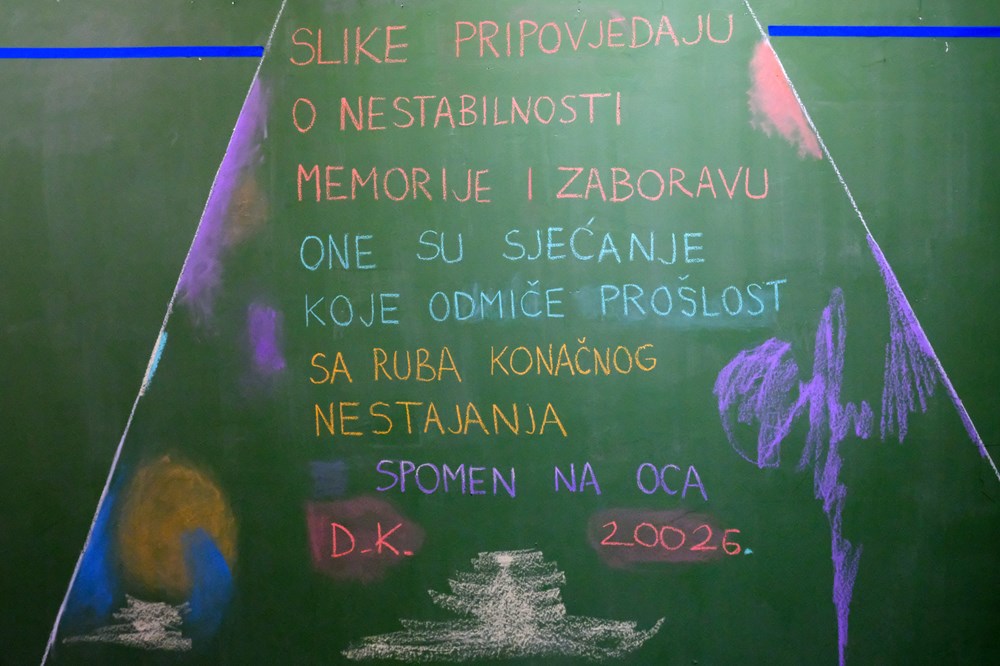 SLIKE PRIPOVJEDAJU
O NESTABILNOSTI
MEMORIJE I ZABORAVU
ONE SU SJEĆANJE
KOJE ODMIČE PROŠLOST
SA RUBA KONAČNOG
NESTAJANJA
SPOMEN NA OCA
D.K. 2002G.